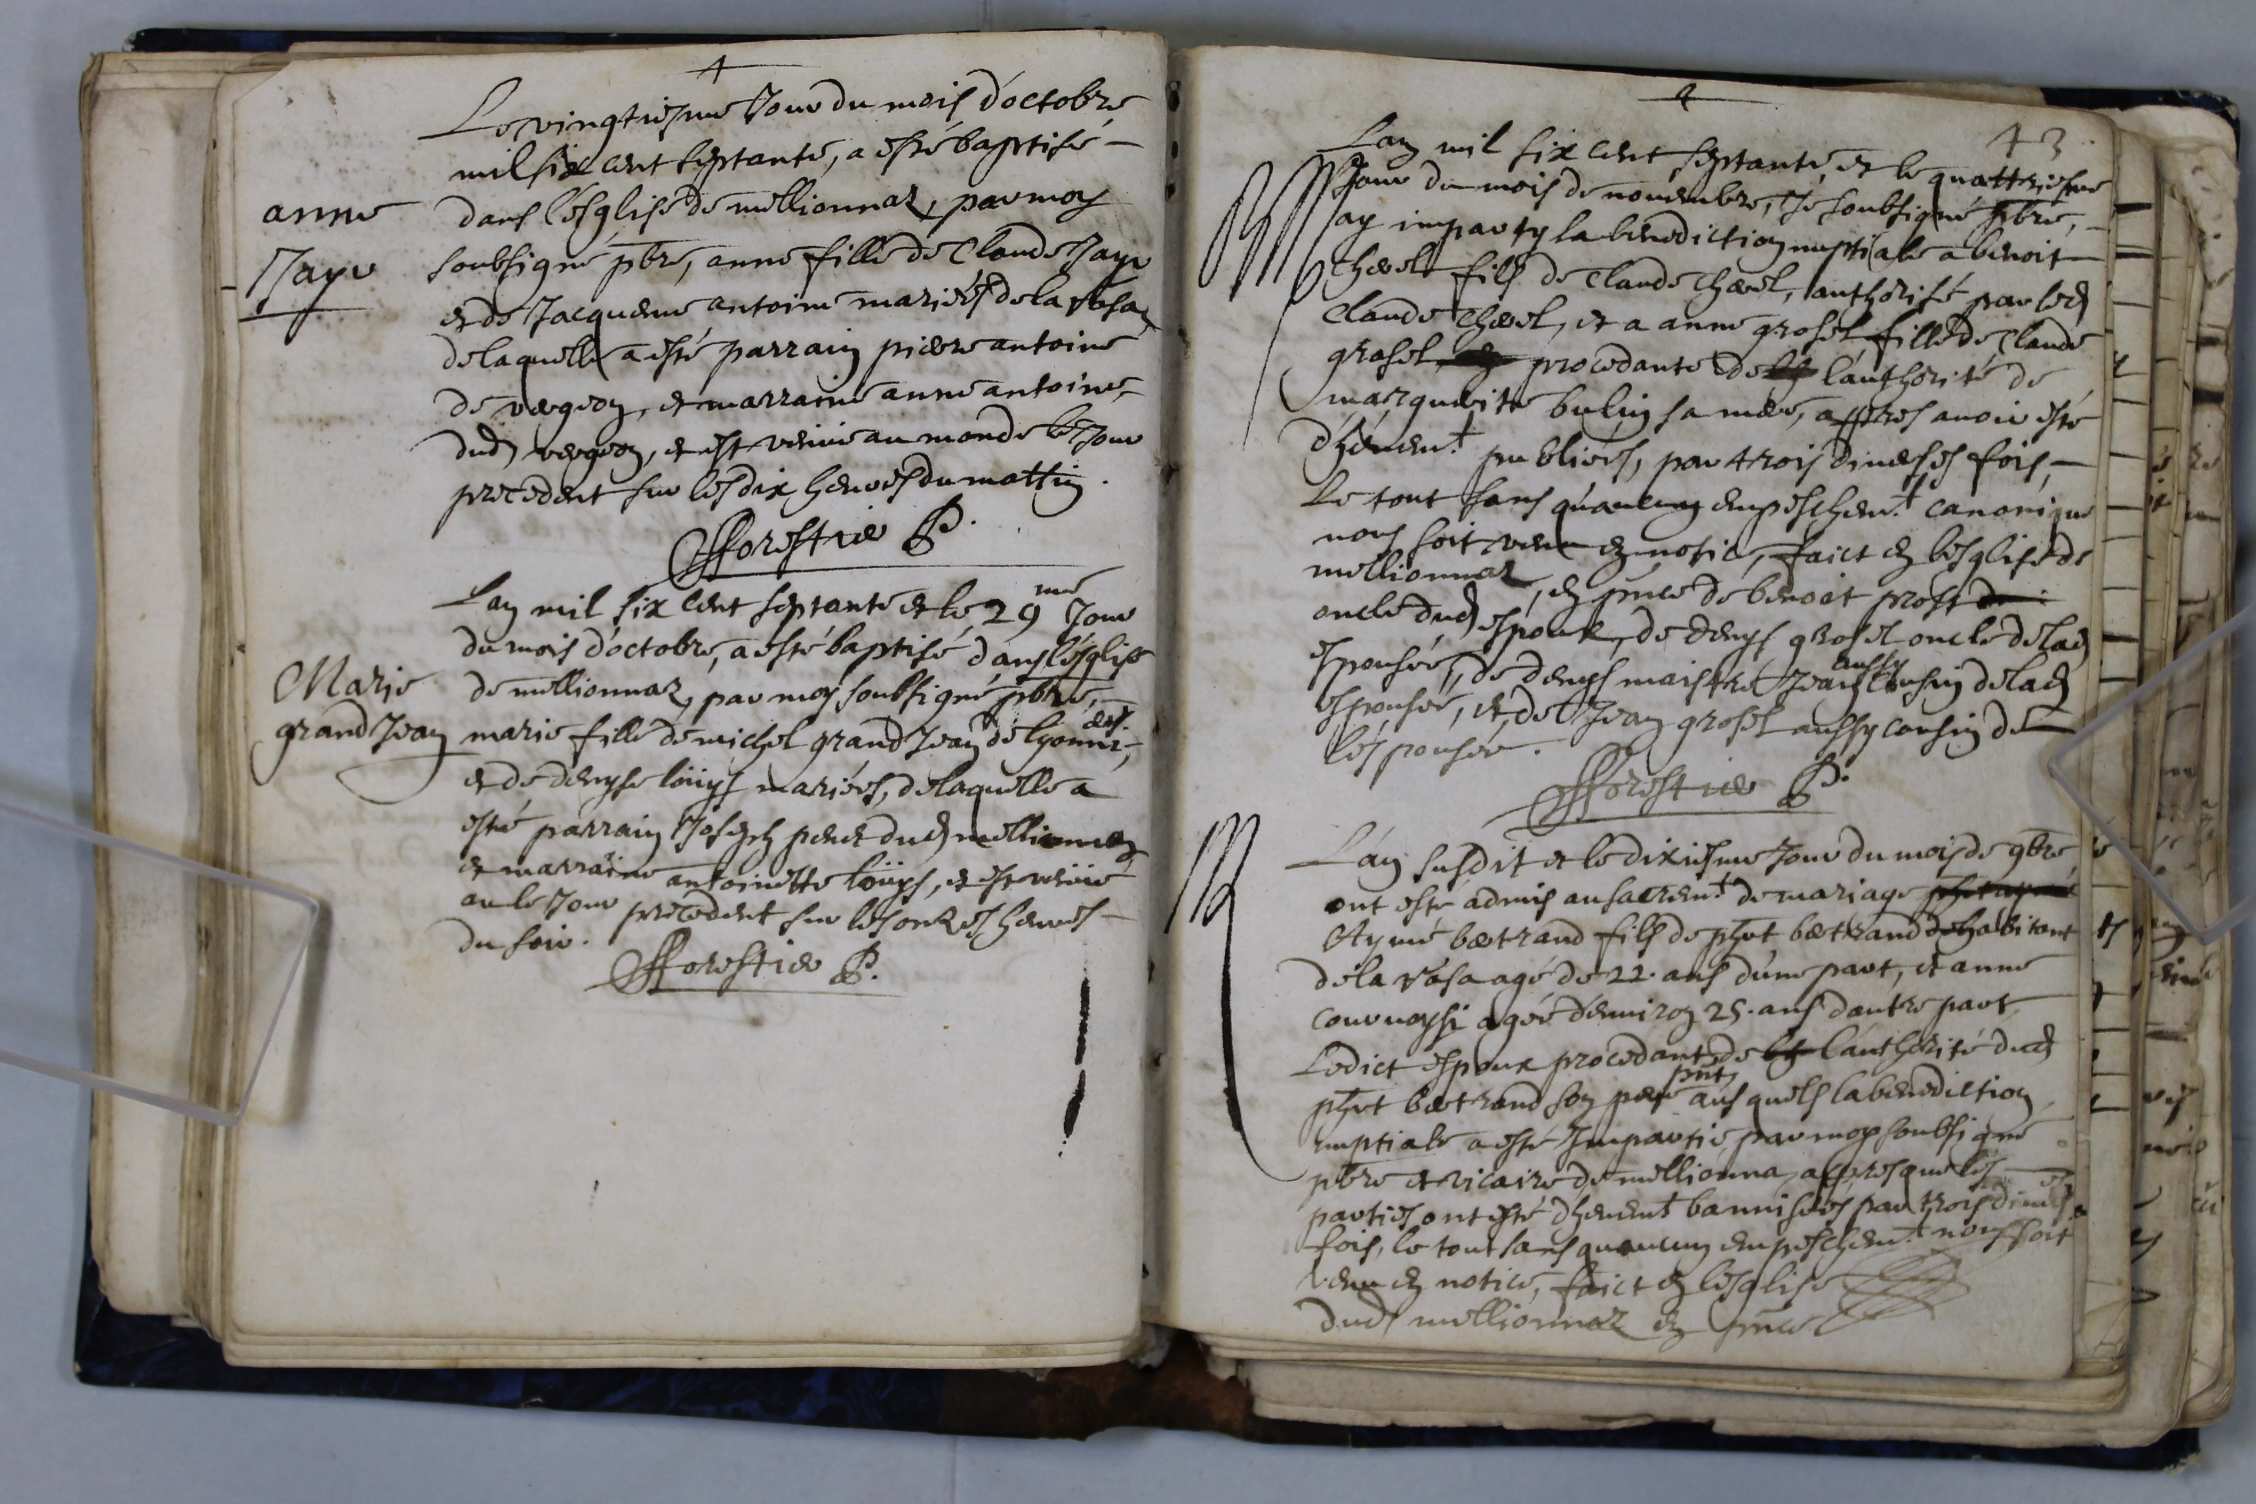 Le vingtiesme Jour du mois d'octobre
mil six cent septante, a esté baptisé
anne
dans l'esglise de mellionnaz, par moy
Jayr
soubsigné pbre, anne fille de Claude Jayr
et de Jacqueme antoine mariés de la
de laquelle a esté parrain pierre antoine
de vergeon, et marraine anne antoine,
dud vergeon, et est venüe au monde le Jour
precedent sur les dix heures du mattin.
fforestier P.
Lan mil six cent septante et le 29me Jour
du mois d'octobre, a esté baptisé dans l'esglise
Marie
de mellionnaz, par moy soubsigné pbre,
grand Jean
marie fille de michel grand Jean de
et de denyse löuys mariés, de laquelle a
esté parrain Joseph peret dud mellionnaz
et marraine antoinette löuys, et est venüe
au le Jour precedent sur les onzes heures
du soir.
fforestier P.
43
Lan mil six cent septante, et le quattriesme
Jour du mois de novembre, Je soubsigné pbre,
ay imparty la benediction nuptiale a benoit
Chevel fils de Claude Chevel, authorisé par led
Claude Chevel, et a anne grosel, fille de Claude
grosel procedante de l'authorité de
marguerite bulin sa mere, appres avoir esté
dhëuemt publiées, par trois diverses fois,
Le tout sans qu'aucung empeschemt canonique
nous soit venu en notice, faict en l'esglise de
mellionnaz, en pnce de benoit prost
oncle dud espoux, de denys grosel oncle de lad
espousée, de denys maistre Jean aussy cousin de lad
espousée, et de Jean grosel aussy cousin de
l'espousée.
fforestier P.
L'an susdit et le dixiesme Jour du mois de 9bre
ont esté admis au sacremt de mariage
Aymé bertrand fils de phet bertrand habitant
de la agé de 22. ans d'une part, et anne
agée d'environ 25. ans d'autre part
Ledict espoux procedant de l'authorité dud
phet bertrand son pere pnt, ausquels la benediction
nuptiale a esté Impartie, par moy soubsigné
pbre et vicaire de mellionna, appres que les
parties ont esté dheuemt bannisées par trois diverses
fois, le tout sans qu'aucung empeschemt nous soit
venu en notice, faict en l'esglise
dud mellionnaz en pnce